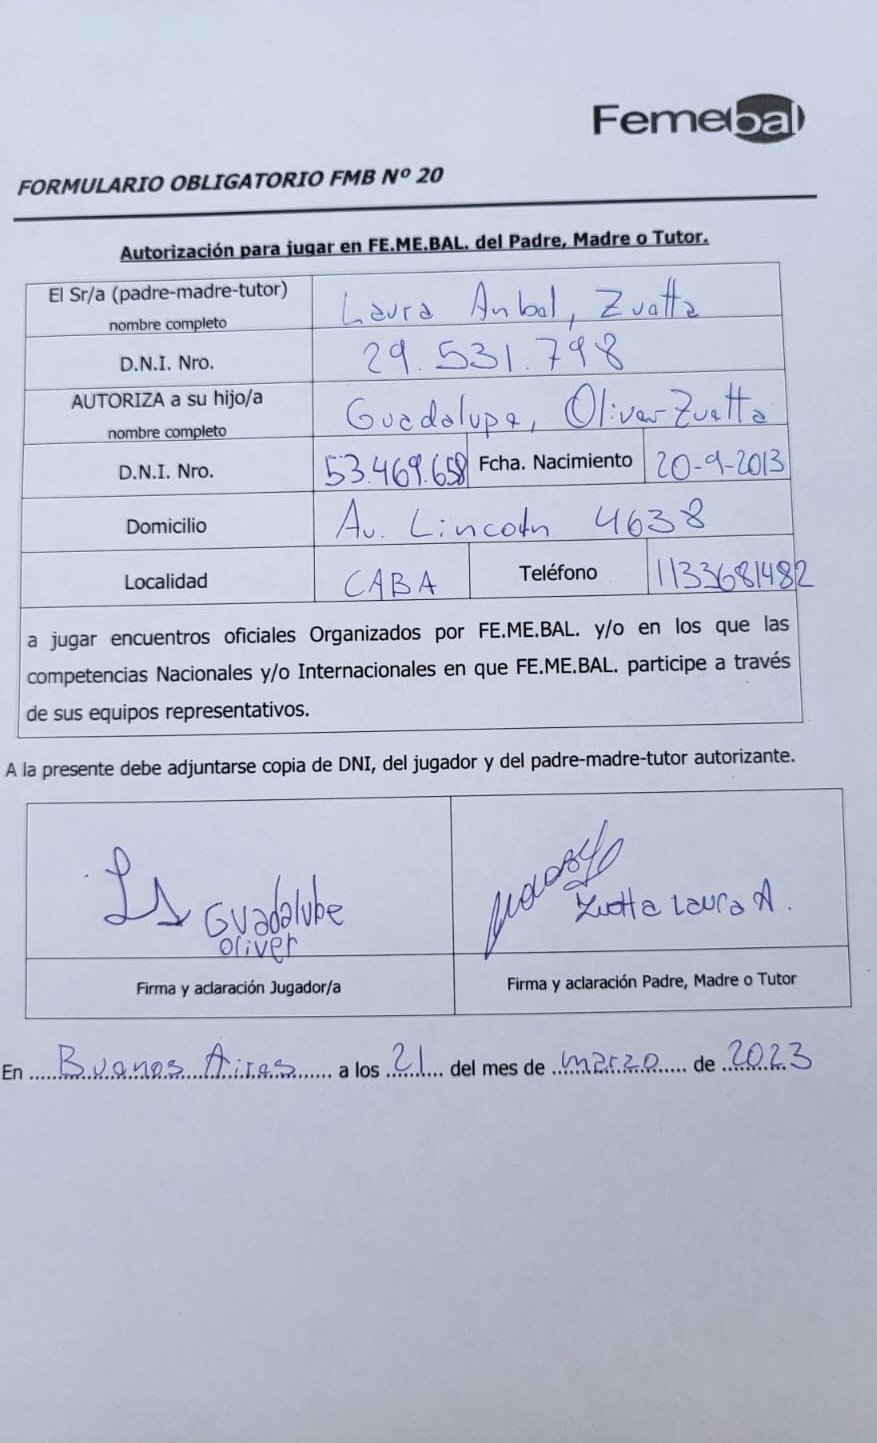 Femebal
FORMULARIO OBLIGATORIO FMB Nº 20
Autorización para jugar en FE.ME.BAL. del Padre, Madre o Tutor.
El Sr/a (padre-madre-tutor)
nombre completo
Laura Anbal, Zvatta
D.N.I. Nro.
29.531.798
AUTORIZA a su hijo/a
nombre completo
Guadalupe, Oliver Zvatta
D.N.I. Nro.
53.469.658 Fcha. Nacimiento 20-9-2013
Domicilio
Av. Lincoln 4638
Localidad
CABA Teléfono 1133681482
a jugar encuentros oficiales Organizados por FE.ME.BAL. y/o en los que las
competencias Nacionales y/o Internacionales en que FE.ME.BAL. participe a través
de sus equipos representativos.
A la presente debe adjuntarse copia de DNI, del jugador y del padre-madre-tutor autorizante.
Guadalube
oliver
Laura A.
Firma y aclaración Jugador/a
Firma y aclaración Padre, Madre o Tutor
En Buenos Aires a los 21 del mes de marzo de 2023